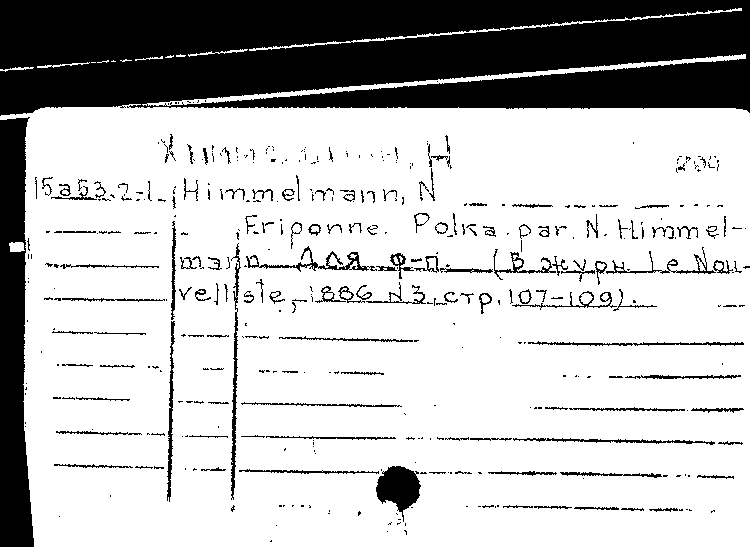 Н
200
15a53.2-1. Himmelmann, N
Friponne. Polka par N. Himmel-
mann. Для ф-п. (В журн. Le Nou-
velliste, 1886 N3, стр. 107-109).